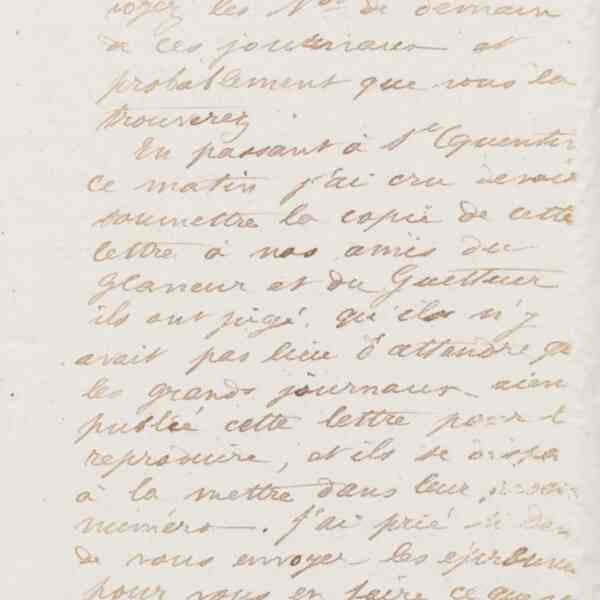 voyez les Nos de demain
de ces journaux et
probablement que vous la
trouverez
En passant à St Quentin
ce matin j'ai cru devoir
soumettre la copie de cette
lettre à nos amis du
Glaneur et du Guetteur
ils ont jugé qu'il n'y
avait pas lieu d'attendre q
les grands journaux aien
publié cette lettre pour l
reproduire, et ils se dispo
à la mettre dans leur
numéro. J'ai prié
de vous envoyer les épreuves
pour vous en faire ce que